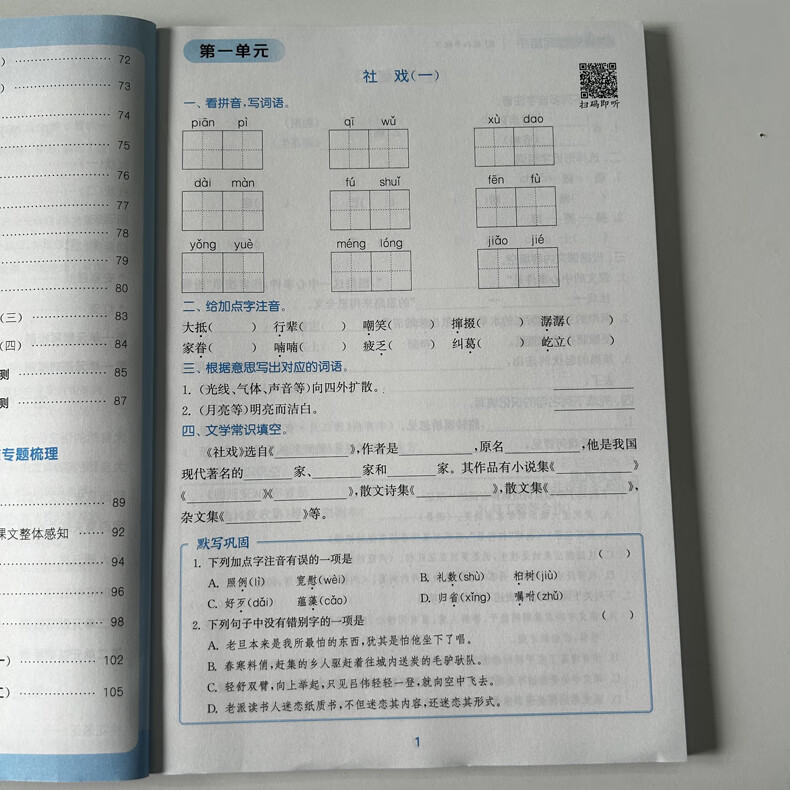 72
73
74
75
76
77
78
79
80
（三） 83
（四） 84
测 85
测 87
专题梳理
89
课文整体感知 92
94
96
98
102
105
第一单元
社 戏(一)
扫码即听
一、看拼音,写词语。
piān pì qī wǔ xù dao
dài màn fú shuǐ fēn fù
yǒng yuè méng lóng jiāo jié
二、给加点字注音。
大抵( ) 行辈( ) 嘲笑( ) 撺掇( ) 潺潺( )
家眷( ) 喃喃( ) 疲乏( ) 纠葛( ) 屹立( )
三、根据意思写出对应的词语。
1. (光线、气体、声音等)向四外扩散。
2. (月亮等)明亮而洁白。
四、文学常识填空。
《社戏》选自《 》,作者是 ,原名 ,他是我国
现代著名的 家、 家和 家。其作品有小说集《 》
《 》《 》,散文诗集《 》,散文集《 》,
杂文集《 》等。
默写巩固
1. 下列加点字注音有误的一项是 ( )
A. 照例(lì) 宽慰(wèi) B. 礼数(shù) 桕树(jiù)
C. 好歹(dǎi) 蕴藻(cǎo) D. 归省(xǐng) 嘱咐(zhǔ)
2. 下列句子中没有错别字的一项是 ( )
A. 老旦本来是我所最怕的东西,犹其是怕他坐下了唱。
B. 春寒料俏,赶集的乡人驱赶着往城内送炭的毛驴驮队。
C. 轻舒双臂,向上举起,只见吕伟轻轻一登,就向空中飞去。
D. 老派读书人迷恋纸质书,不但迷恋其内容,还迷恋其形式。
1